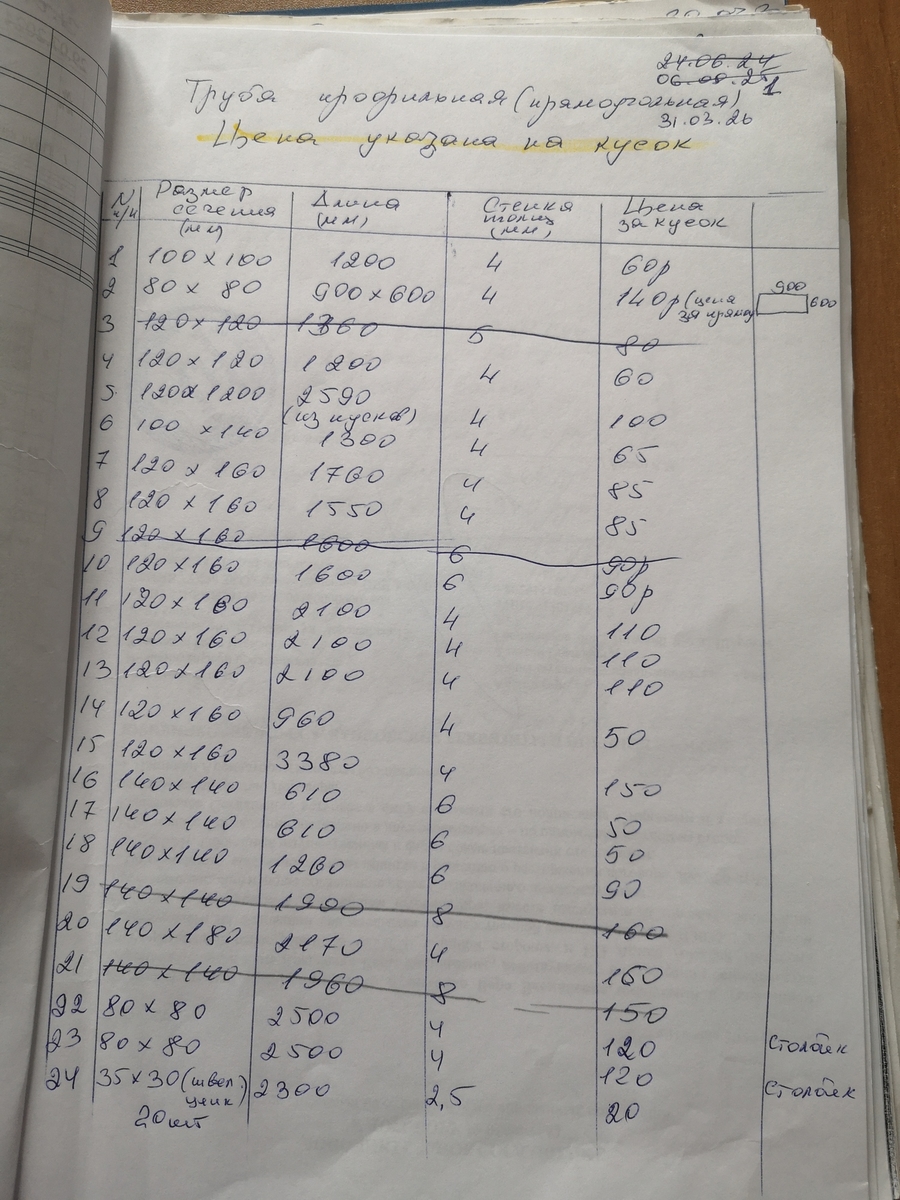 24.06.24
06.09.24
1
Труба профильная (прямоугольная)
31.03.26
Цена указана на кусок
N п/п Размер сечения (мм) Длина (мм) Стенка толщ (мм) Цена за кусок
1 100 х 100 1200 4 60р
2 80 х 80 900 х 600 4 140р (цена за прямо 900 600
3 120 х 120 1360 5 80
4 120 х 120 1200 4 60
5 120х1200 2590 (из кусков) 4 100
6 100 х 140 1300 4 65
7 120 х 160 1760 4 85
8 120 х 160 1550 4 85
9 120 х 160 1600 6 90р
10 120 х 160 1600 6 90р
11 120 х 160 2100 4 110
12 120 х 160 2100 4 110
13 120 х 160 2100 4 110
14 120 х 160 960 4 50
15 120 х 160 3380 4 150
16 140 х 140 610 6 50
17 140 х 140 610 6 50
18 140х140 1260 6 90
19 140 х 140 1900 8 160
20 140 х 180 2170 4 160
21 140 х 140 1960 8 150
22 80 х 80 2500 4 120 Столбик
23 80 х 80 2500 4 120 Столбик
24 35 х 30 (швел. цинк) 2300 2,5 20
20 шт